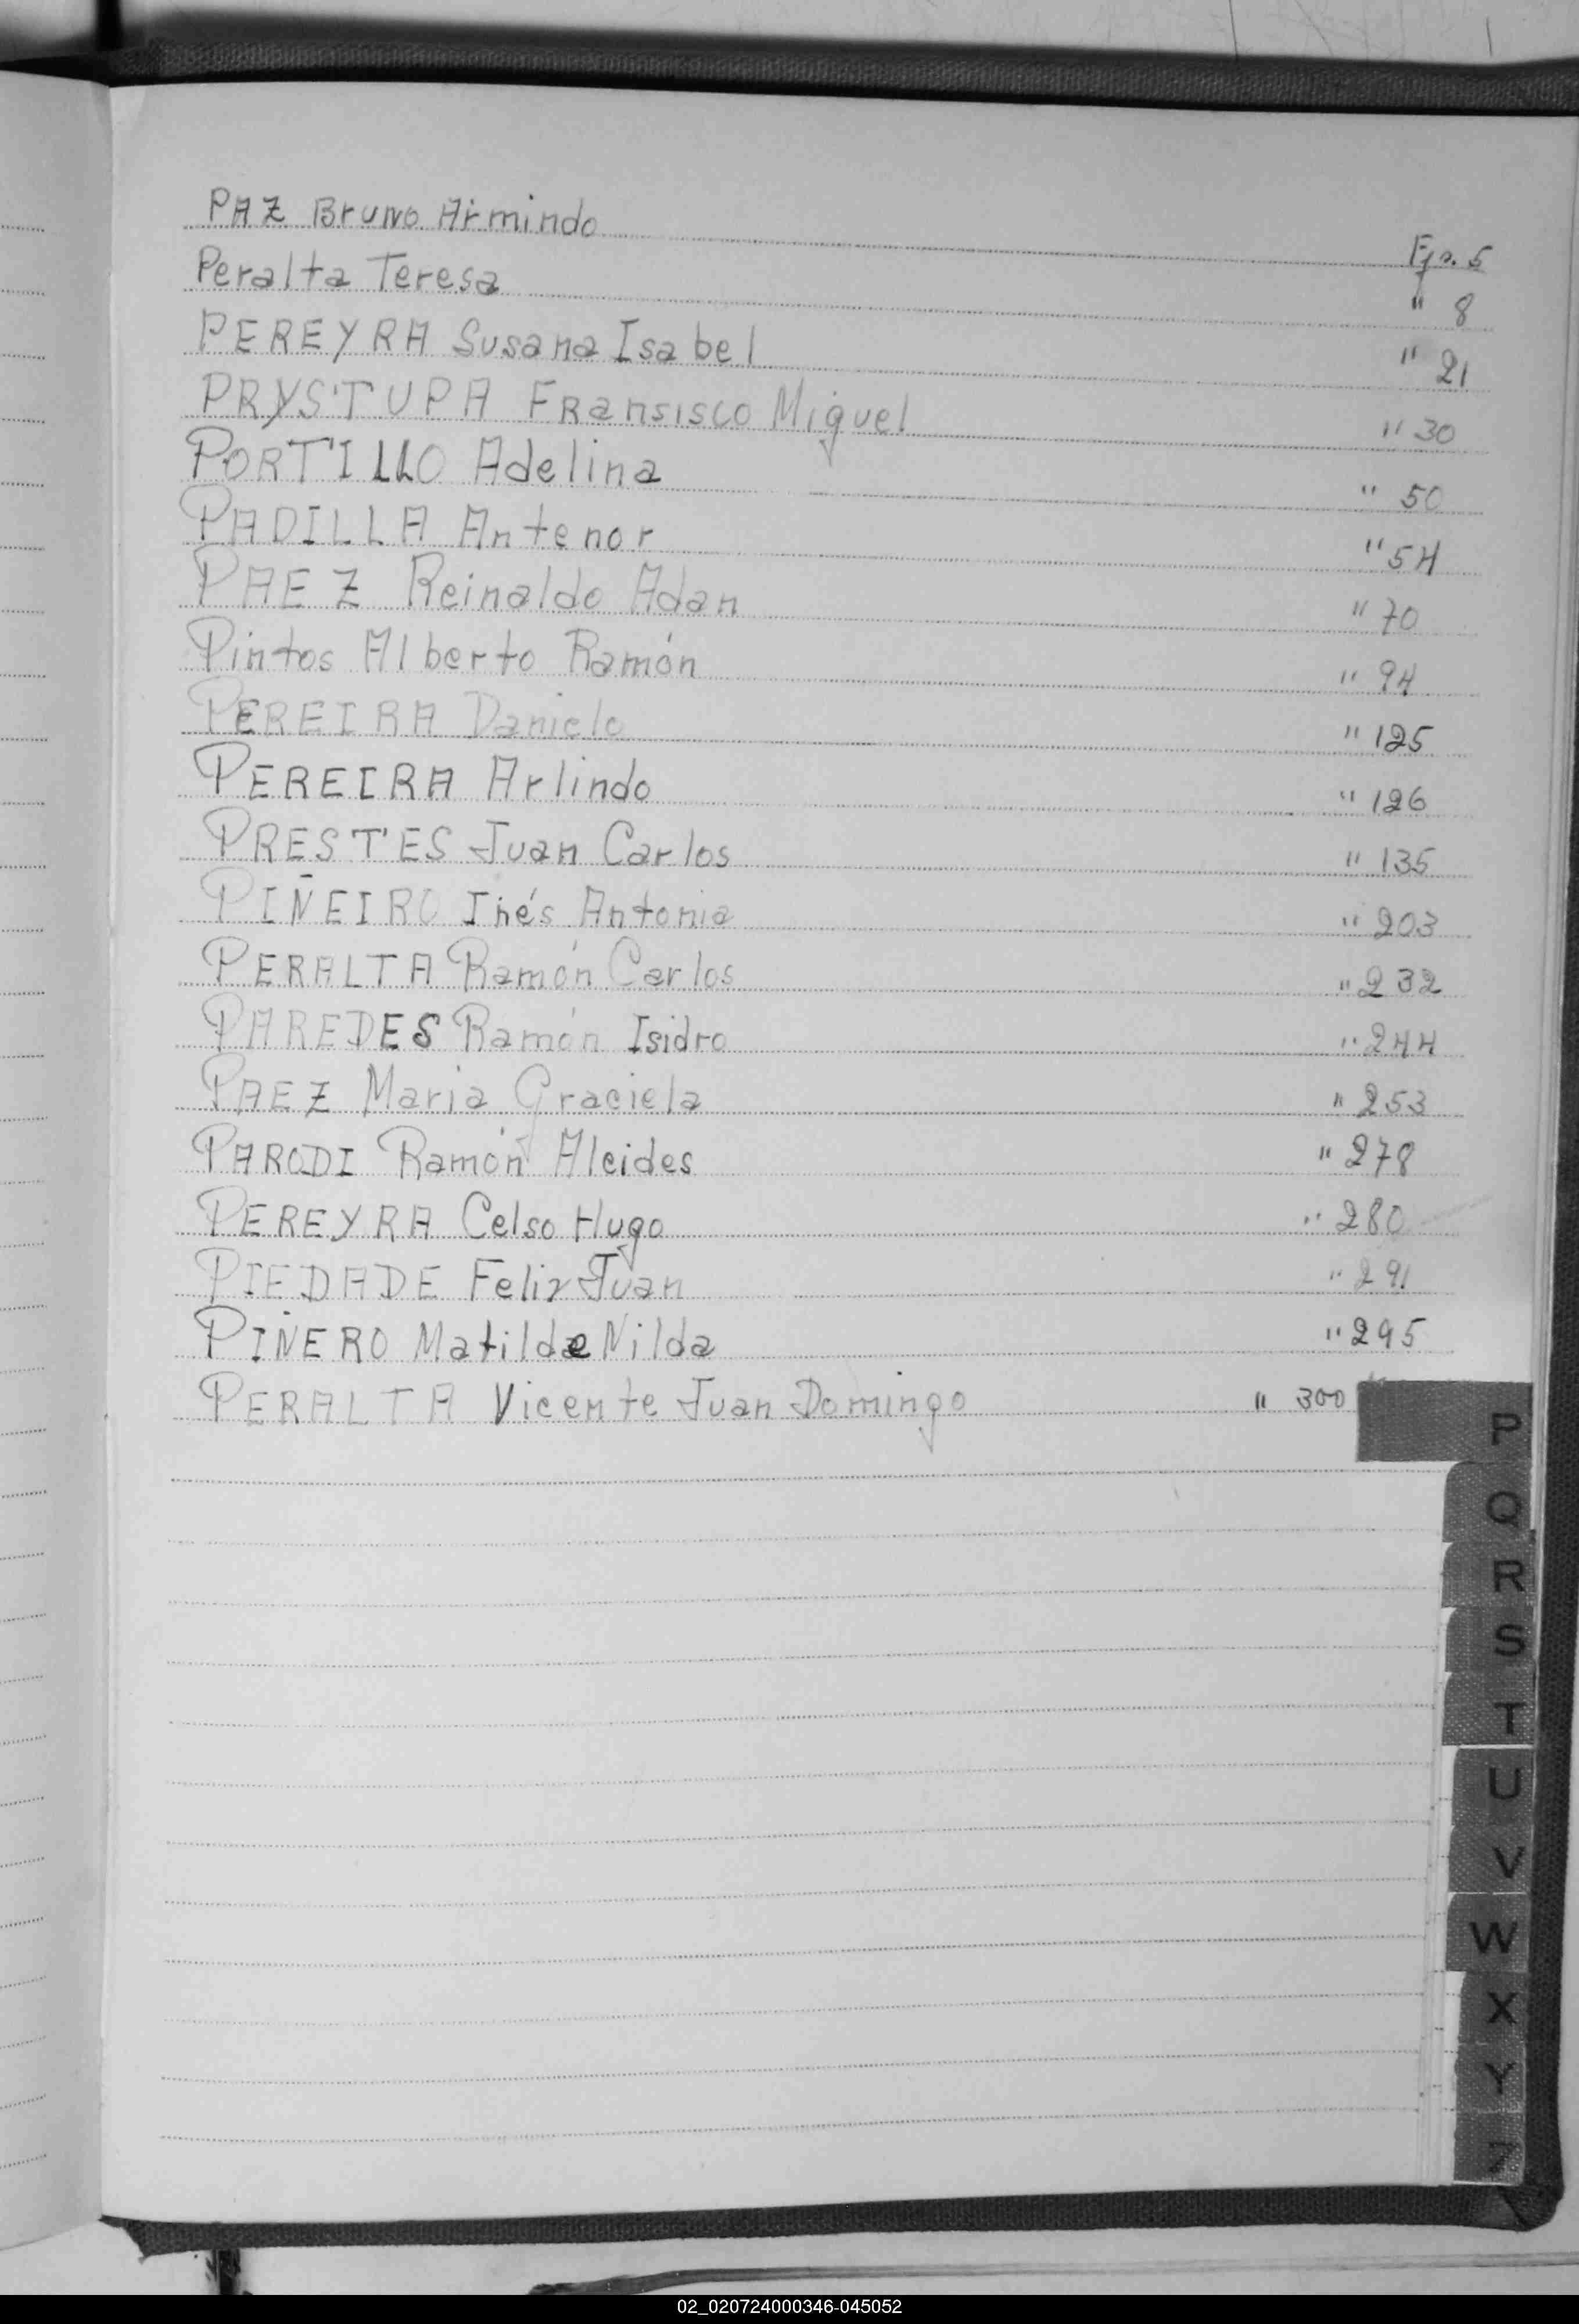 PAZ Bruno Armindo Fjo. 5
Peralta Teresa " 8
PEREYRA Susana Isabel " 21
PRYSTUPA Fransisco Miguel " 30
PORTILLO Adelina " 50
PADILLA Antenor " 54
PAEZ Reinaldo Adan " 70
Pintos Alberto Ramón " 94
PEREIRA Danielo " 125
PEREIRA Arlindo " 126
PRESTES Juan Carlos " 135
PIÑEIRO Inés Antonia " 203
PERALTA Ramón Carlos " 232
PAREDES Ramón Isidro " 244
PAEZ Maria Graciela " 253
PARODI Ramón Alcides " 278
PEREYRA Celso Hugo " 280
PIEDADE Felix Juan " 291
PIÑERO Matilde Nilda " 295
PERALTA Vicente Juan Domingo " 300
P
Q
R
S
T
U
V
W
X
Y
Z
02_020724000346-045052